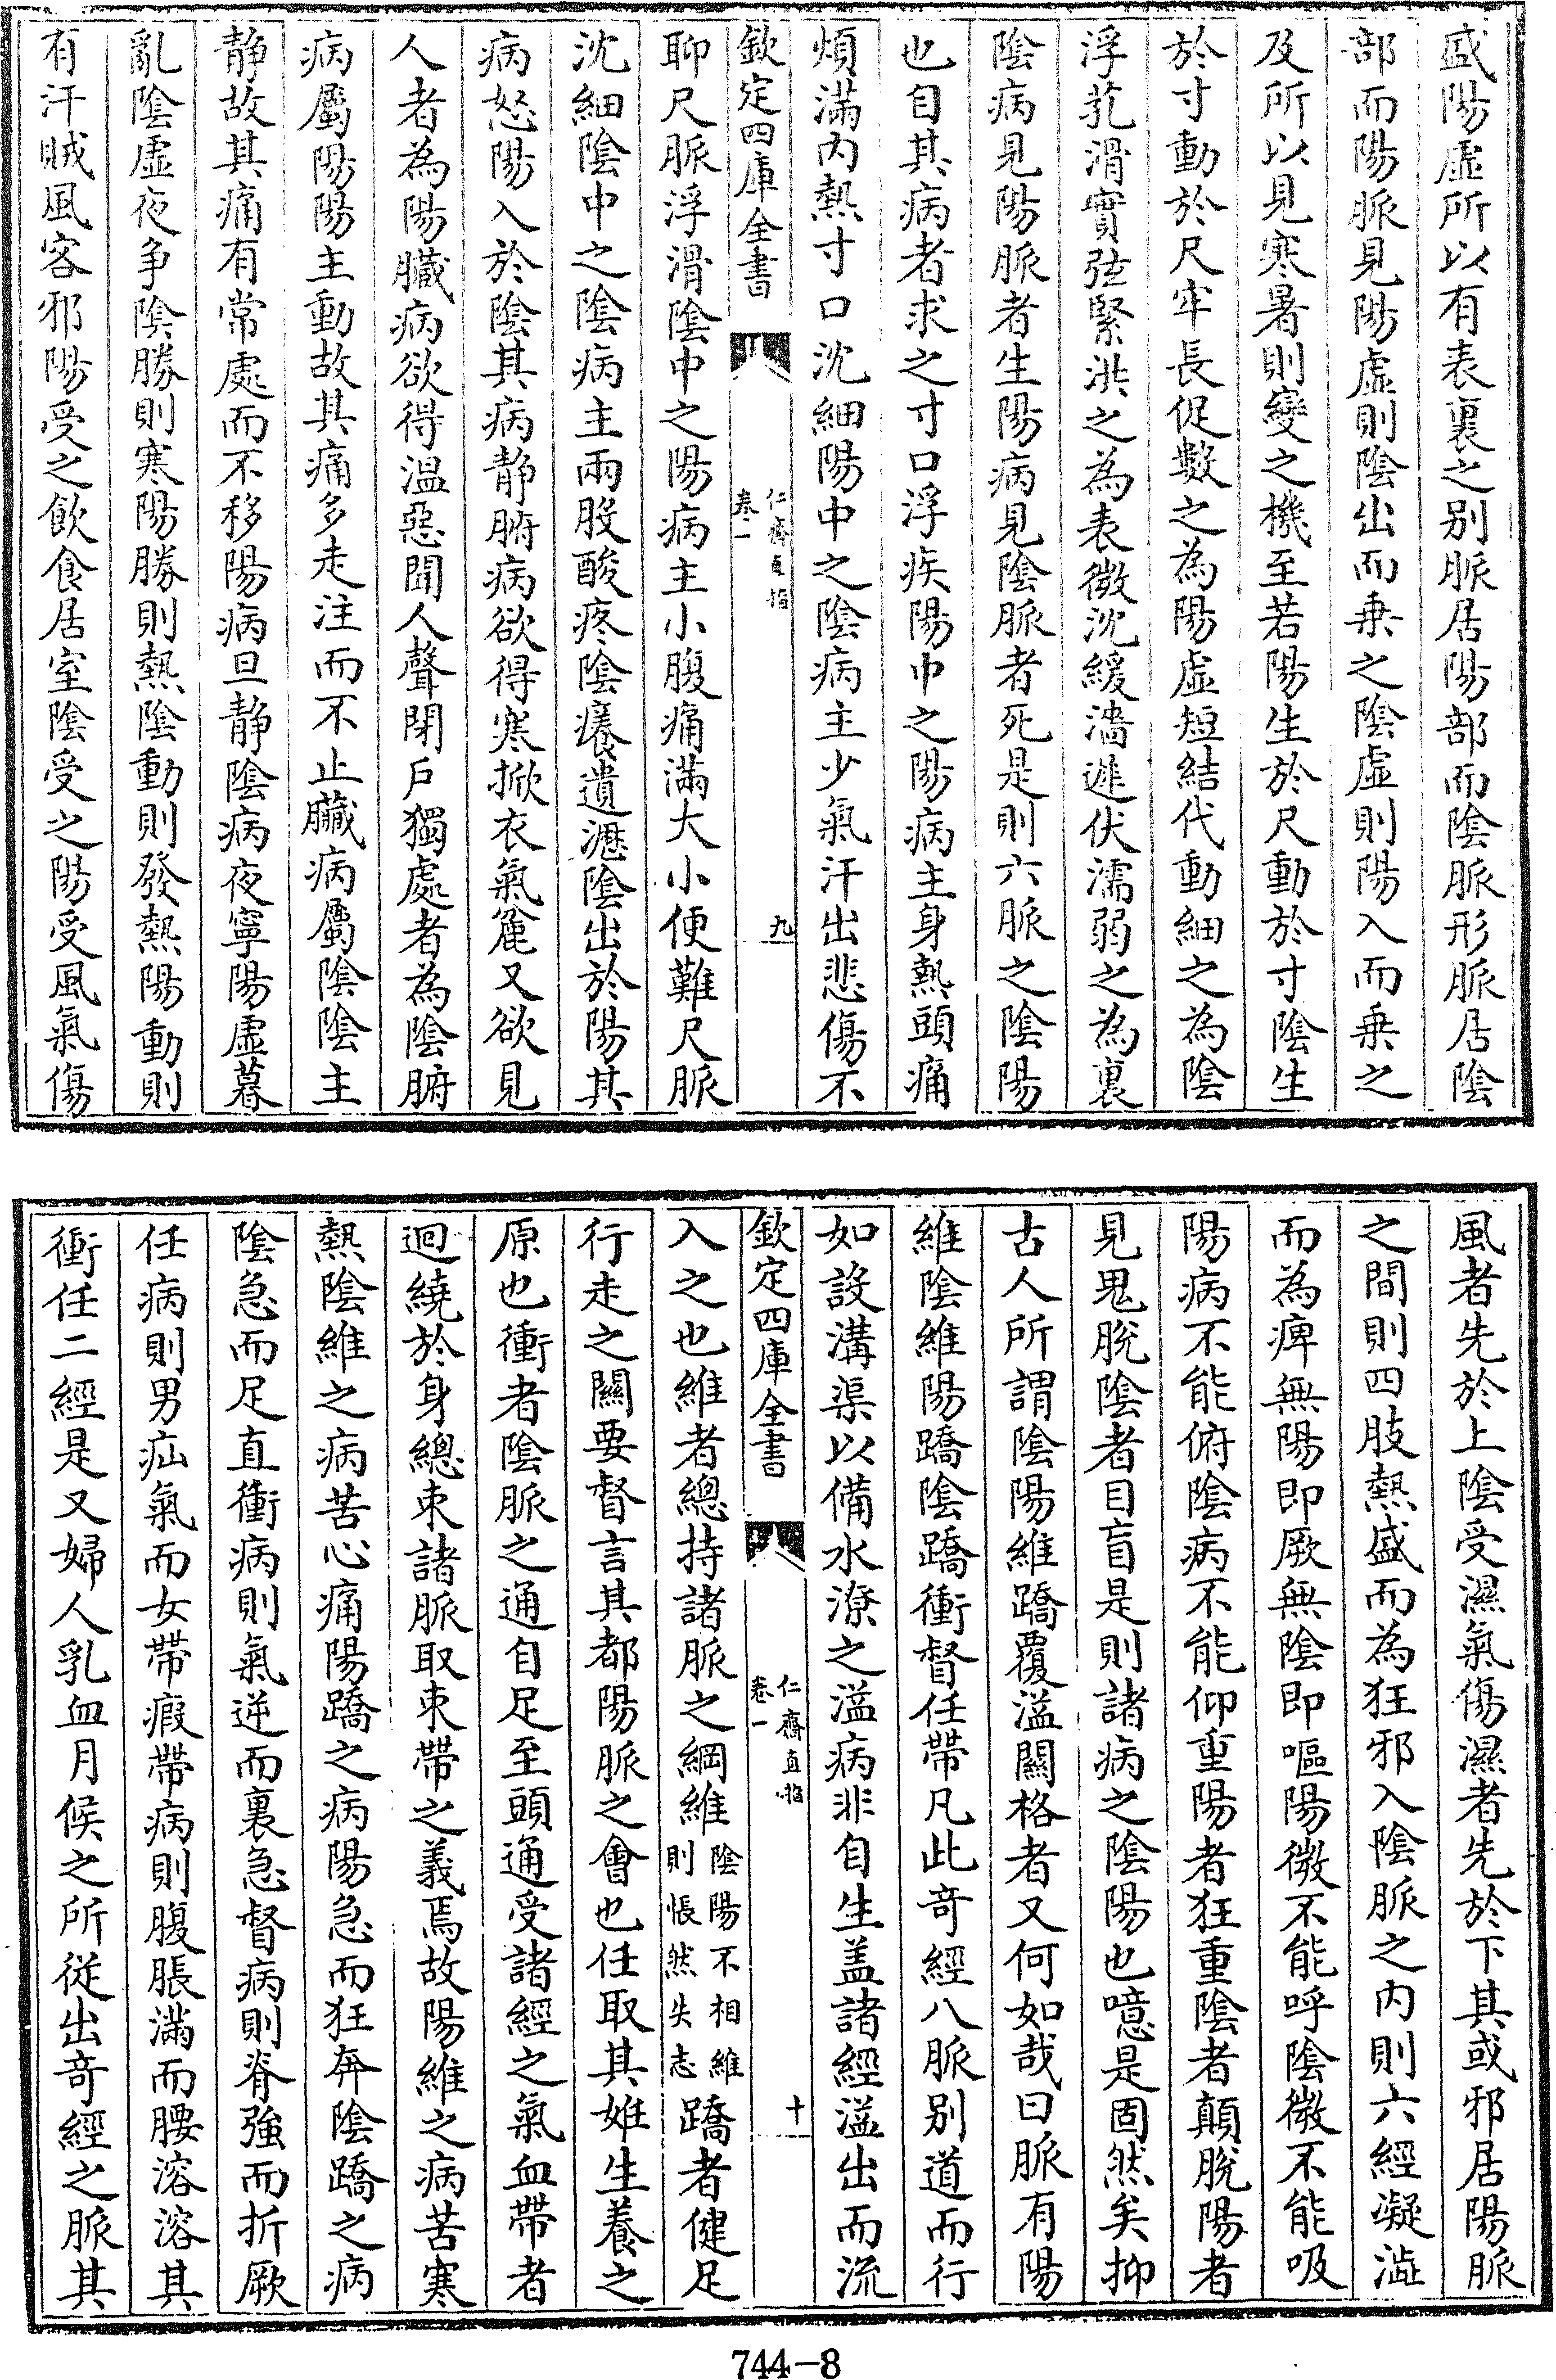 盛陽虛所以有表裏之别脈居陽部而陰脈形脈居陰
部而陽脈見陽虛則陰出而乗之陰虛則陽入而乗之
及所以見寒暑則變之機至若陽生於尺動於寸陰生
於寸動於尺牢長促數之為陽虛短結代動細之為陰
浮芤滑實弦緊洪之為表微沈緩濇遲伏濡弱之為裏
陰病見陽脈者生陽病見陰脈者死是則六脈之陰陽
也自其病者求之寸口浮疾陽中之陽病主身熱頭痛
煩滿内熱寸口沈細陽中之陰病主少氣汗出悲傷不
欽定四庫全書
仁齋直指
卷一
九
聊尺脈浮滑陰中之陽病主小腹痛滿大小便難尺脈
沈細陰中之陰病主兩股酸疼陰癢遺瀝陰出於陽其
病怒陽入於陰其病静腑病欲得寒掀衣氣麄又欲見
人者為陽臟病欲得温惡聞人聲閉戶獨處者為陰腑
病屬陽陽主動故其痛多走注而不止臟病屬陰陰主
静故其痛有常處而不移陽病旦静陰病夜寧陽虛暮
亂陰虛夜争陰勝則寒陽勝則熱陰動則發熱陽動則
有汗賊風客邪陽受之飲食居室陰受之陽受風氣傷
風者先於上陰受濕氣傷濕者先於下其或邪居陽脈
之間則四肢熱盛而為狂邪入陰脈之内則六經凝澁
而為痺無陽即厥無陰即嘔陽微不能呼陰微不能吸
陽病不能俯陰病不能仰重陽者狂重陰者顛脫陽者
見鬼脫陰者目盲是則諸病之陰陽也噫是固然矣抑
古人所謂陰陽維蹻覆溢關格者又何如哉曰脈有陽
維陰維陽蹻陰蹻衝督任帶凡此竒經八脈别道而行
如設溝渠以備水潦之溢病非自生盖諸經溢出而流
欽定四庫全書
仁齋直指
卷一
十
入之也維者總持諸脈之綱維陰陽不相維則悵然失志蹻者健足
行走之關要督言其都陽脈之會也任取其姙生養之
原也衝者陰脈之通自足至頭通受諸經之氣血帶者
迴繞於身總束諸脈取束帶之義焉故陽維之病苦寒
熱陰維之病苦心痛陽蹻之病陽急而狂奔陰蹻之病
陰急而足直衝病則氣逆而裏急督病則脊強而折厥
任病則男疝氣而女帶瘕帶病則腹脹滿而腰溶溶其
衝任二經是又婦人乳血月候之所從出竒經之脈其
744-8